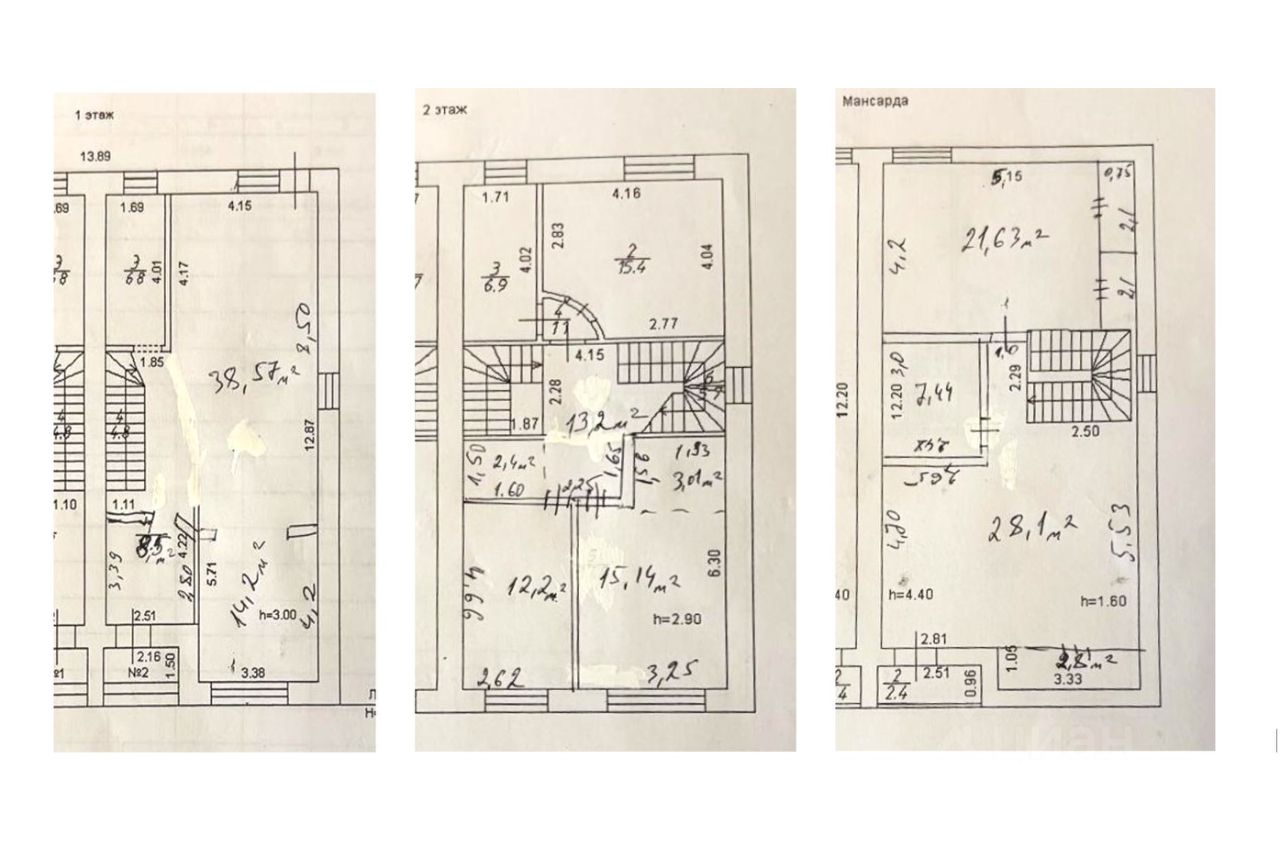 1 этаж
13.89
.69
1.69
4.15
3
6.8
3
6.8
4.01
4.17
8,50
1.85
38,57м²
4
4.8
4
4.8
12.87
1.10
1.11
8,5
м²
4.22
3,39
2,80
5.71
14,2м²
4,2
2.51
h=3.00
2.16
1.50
№1
№2
3.38
2 этаж
1.71
4.16
2.83
4.02
2
15.4
4.04
3
6.9
4
1.1
2.77
4.15
2.28
1.87
13,2м²
1,50
2,4м²
1.60
2,25
1,65
1,56
1,93
3,01м²
4,66
12,2м²
15,14м²
6.30
h=2.90
2,62
3,25
Мансарда
5,15
0,75
4,2
21,63м²
2,1
2,1
1,6
3,0
12.20
12.20
7,44
2.29
2.50
4,70
28,1м²
5,53
40
h=4.40
h=1.60
2.81
2.51
1.05
2,8м²
3.33
2
2.4
0.96
циан